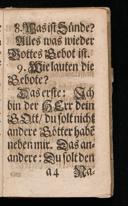 8. Was ist Sünde?
Alles was wieder
Gottes Gebot ist.
9. Wie lauten die
Gebote?
Das erste: Ich
bin der HErr dein
GOtt / du solt nicht
andere Götter habē
neben mir. Das an-
andere: Du solt den
a4 Na-